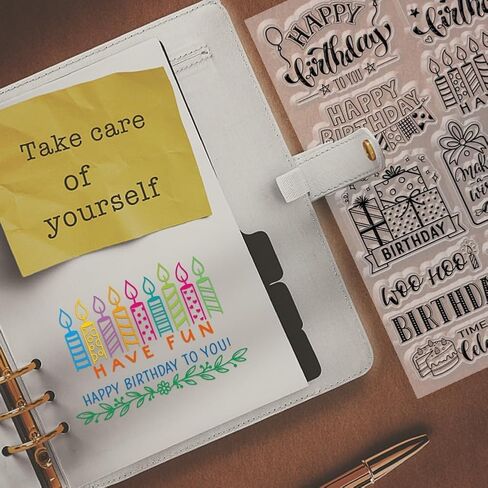 Take care
of
yourself
HAVE FUN
HAPPY BIRTHDAY TO YOU!
HAPPY
birthday
TO YOU
HAPPY
BIRTHDAY
BIRTHDAY
WOO HOO!
BIRTHDAY
TIME